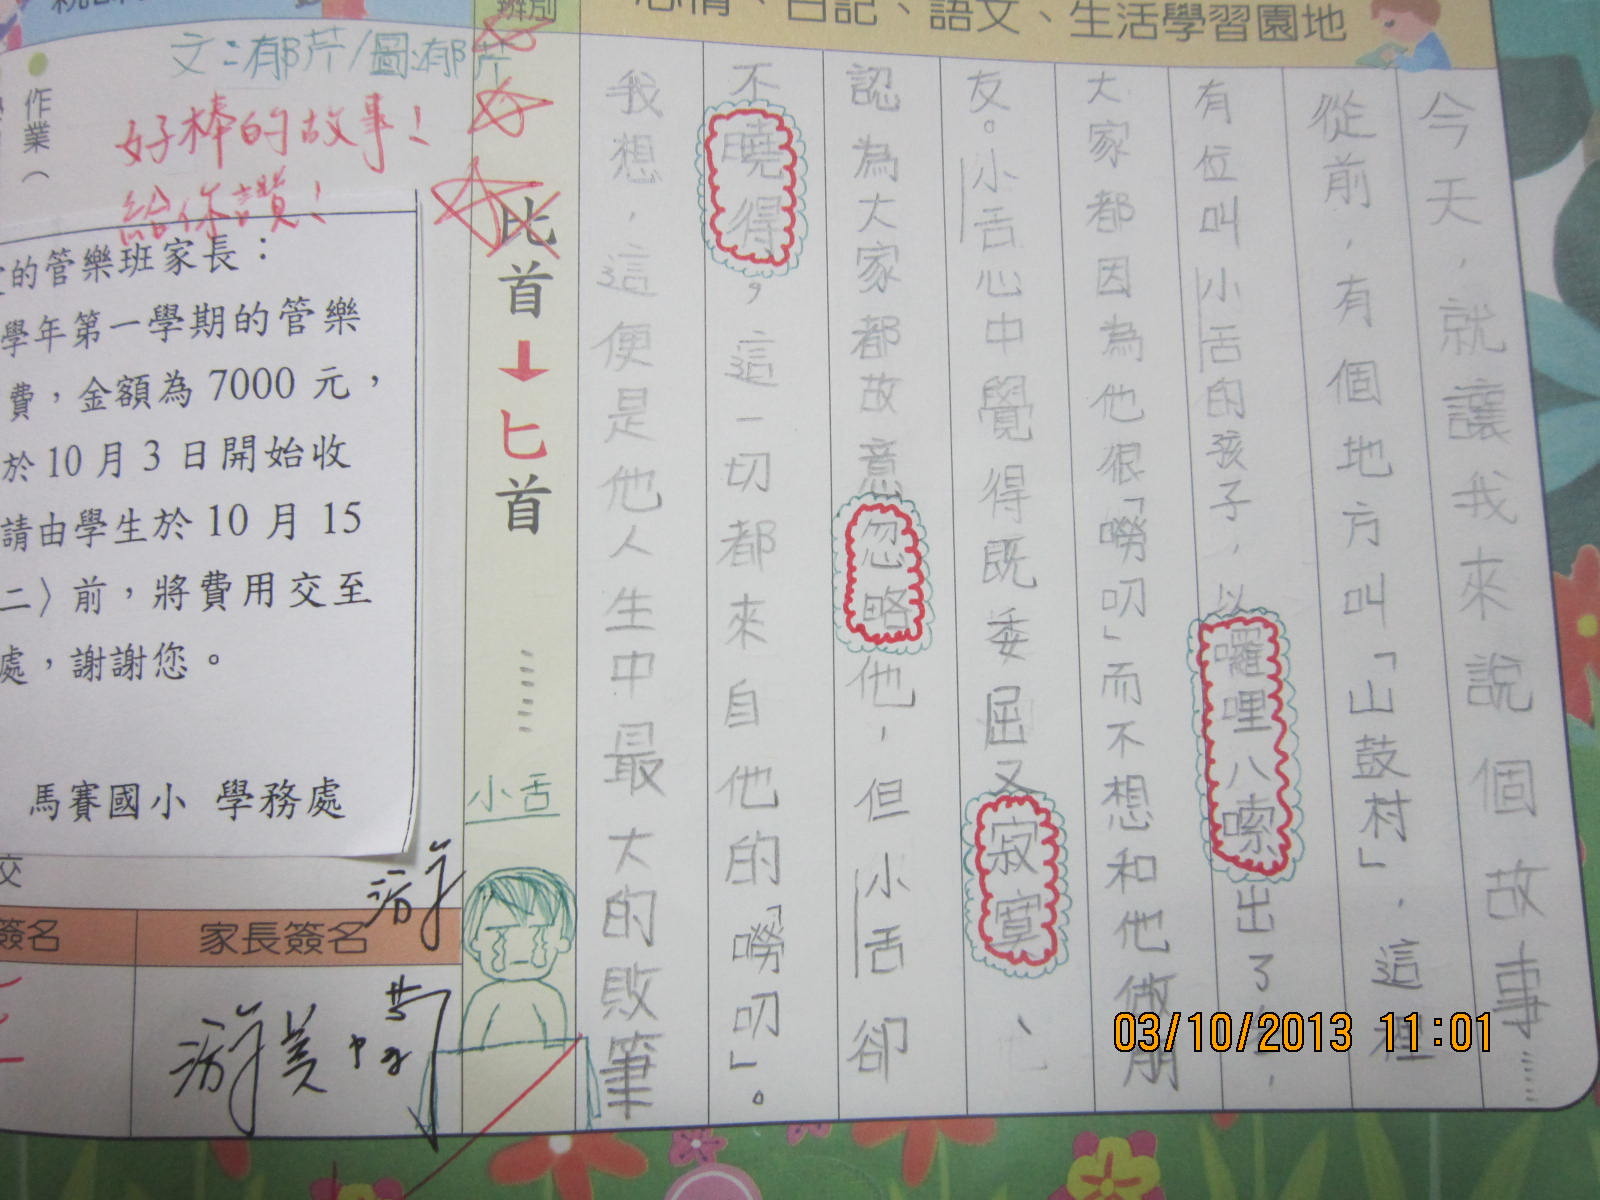 心情、日記、語文、生活學習園地
今天，就讓我來說個故事……
從前，有個地方叫「山鼓村」，這裡
有位叫小舌的孩子，以囉哩八嗦出了名，
大家都因為他很「嘮叨」而不想和他做朋
友。小舌心中覺得既委屈又寂寞、他
認為大家都故意忽略他，但小舌卻
不曉得，這一切都來自他的「嘮叨」。
我想，這便是他人生中最大的敗筆
辨別
比首
↓
匕首
……
小舌
文：郁芹/圖：郁芹
好棒的故事！
給你讚！
作業（
的管樂班家長：
學年第一學期的管樂
費，金額為 7000 元，
於 10 月 3 日開始收
請由學生於 10 月 15
二〉前，將費用交至
處，謝謝您。
馬賽國小 學務處
交
簽名
家長簽名
03/10/2013 11:01